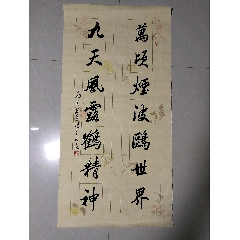 萬頃煙波鷗世界
九天風露鶴精神